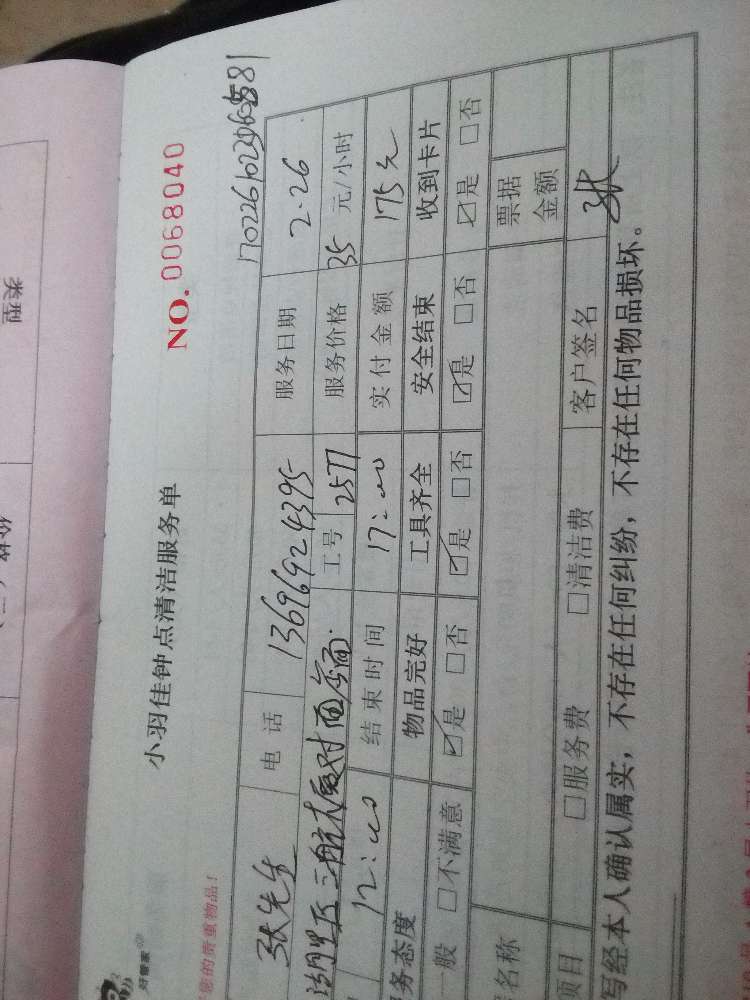 类型
好管家
您的贵重物品!
小羽佳钟点清洁服务单
NO. 0068040
张先生 电话 13696924395 服务日期 2.26
湖里区三航大厦对面 工号 2577 服务价格 35 元/小时
12:00 结束时间 17:00 实付金额 175元
务态度 物品完好 工具齐全 安全结束 收到卡片
一般 □不满意 ☑是 □否 ☑是 □否 ☑是 □否 ☑是 □否
名称 票据金额
项目 □服务费 □清洁费 客户签名 张
写经本人确认属实，不存在任何纠纷，不存在任何物品损坏。